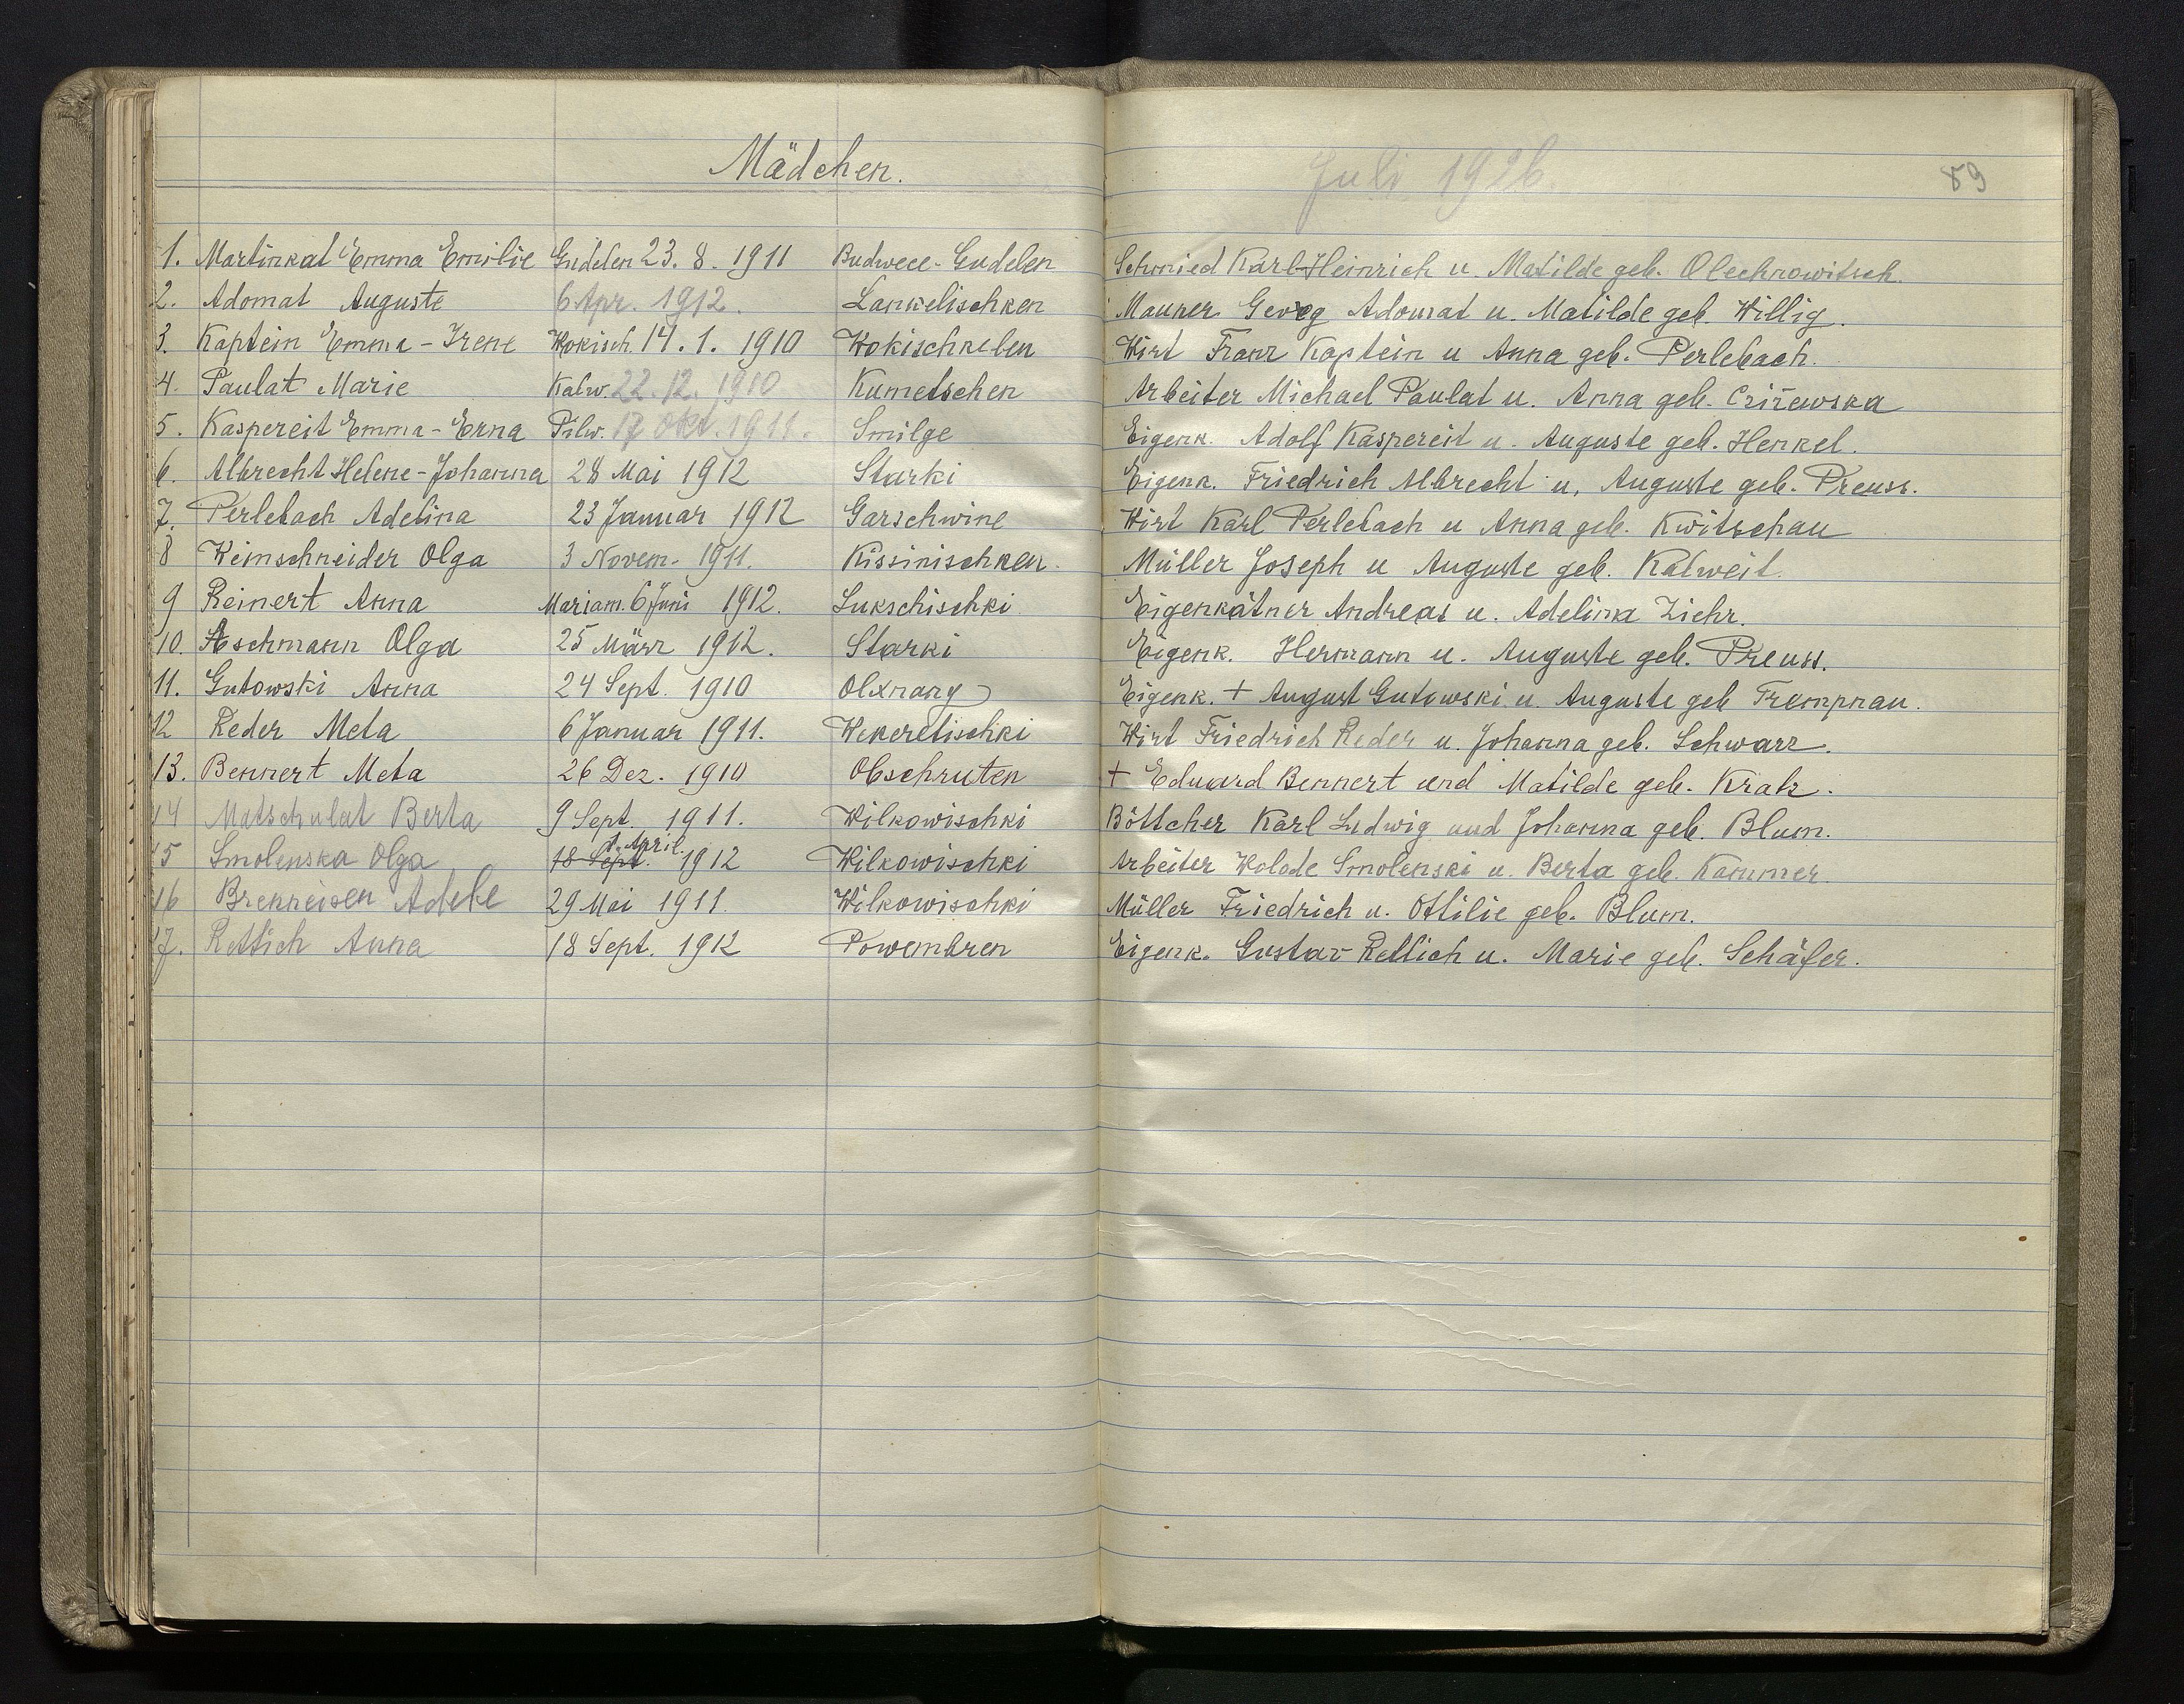 Mädchen.
Juli 1926
89
1. Martinkat Emma Emilie Gudelen 23. 8. 1911 Budwece-Gudelen Schmied Karl-Heinrich u. Matilde geb. Olechnowitsch.
2. Adomat Auguste 6 Apr. 1912. Lankelischken Maurer Georg Adomat u. Matilde geb. Willig.
3. Kaptein Emma-Irene Wokisch. 14. 1. 1910 Wokischkelen Wirt Franz Kaptein u Anna geb. Perlebach.
4. Paulat Marie Kalw. 22. 12. 1910 Kumetschen Arbeiter Michael Paulat u. Anna geb.
5. Kaspereit Emma-Erna Pilw. 17 Okt. 1911. Smilge Eigenk. Adolf Kaspereit u. Auguste geb. Henkel.
6. Albrecht Helene-Johanna 28 Mai 1912 Starki Eigenk. Friedrich Albrecht u. Auguste geb. Preuss.
7. Perlebach Adelina 23 Januar 1912 Garschwine Wirt Karl Perlebach u Anna geb. Kwitschau
8 Weinschneider Olga 3 Novem. 1911. Kissinischken. Müller Joseph u Auguste geb. Kalweit.
9 Reinert Anna Mariam. 6 Juni 1912. Lukschischki Eigenkätner Andreas u. Adelina Ziehr.
10. Aschmann Olga 25 März 1912. Starki Eigenk. Hermann u. Auguste geb. Preuss.
11. Gutowski Anna 24 Sept. 1910 Olxnang Eigenk. + August Gutowski u. Auguste geb Trempnau.
12 Reder Meta 6 Januar 1911. Wekeretischki Wirt Friedrich Reder u. Johanna geb. Schwarz.
13. Bennert Meta 26 Dez. 1910 Obschruten + Eduard Bennert und Matilde geb. Kratz.
14 Matschulat Berta 9 Sept. 1911. Wilkowischki Böttcher Karl Ludwig und Johanna geb. Blum.
1. April.
15 Smolenska Olga 18 Sept. 1912 Wilkowischki Arbeiter Wolode Smolenski u. Berta geb. Kammer.
16 Brenneisen Adele 29 Mai 1911. Wilkowischki Müller Friedrich u. Ottilie geb. Blum.
17. Rettich Anna 18 Sept. 1912 Powembren Eigenk. Gustav Rettich u. Marie geb. Schäfer.